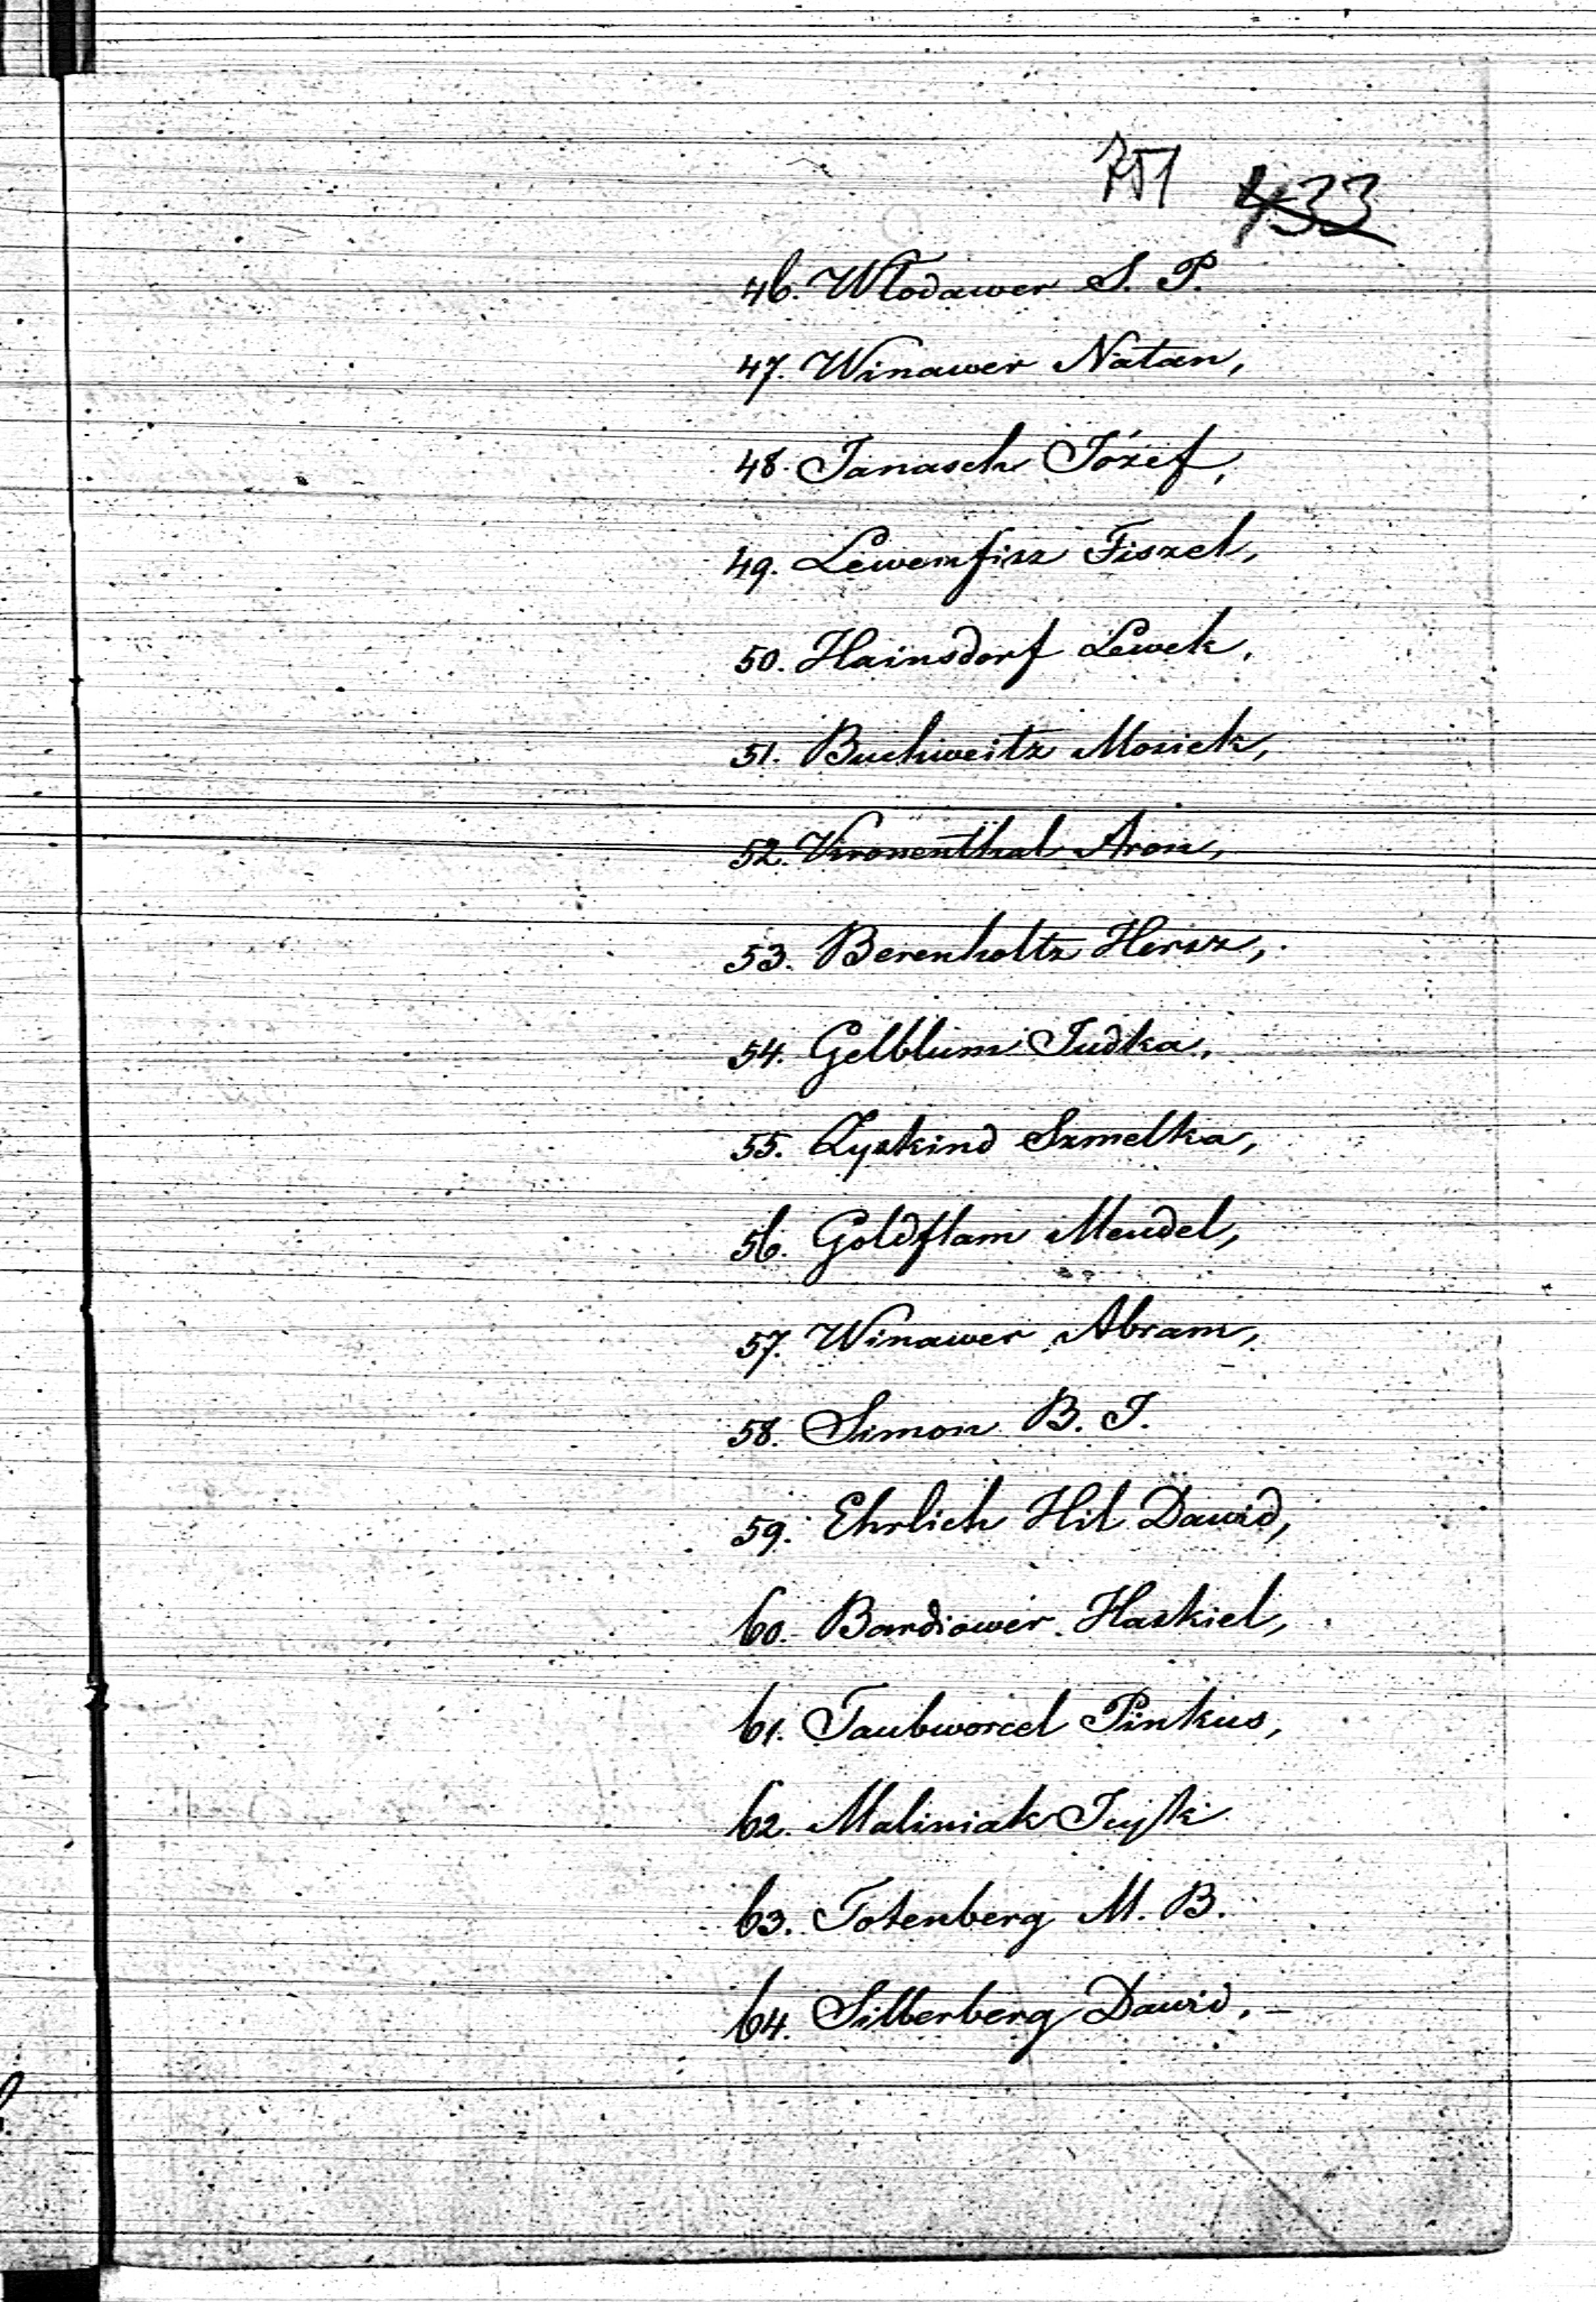 751 433
46. Włodawer S. P.
47. Winawer Natan,
48. Janasch Józef,
49. Lewenfisz Fiszel,
50. Hainsdorf Lewek,
51. Buchweitz Mosiek,
52. Aron,
53. Berenholtz Hersz,
54. Gelblum Judka,
55. Zyskind Szmelka,
56. Goldflam Mendel,
57. Winawer Abram,
58. Simon B. J.
59. Ehrlich Hil Dawid,
60. Haskiel,
61. Taubworcel Pinkus,
62. Maliniak
63. Totenberg M. B.
64. Silberberg Dawid. –